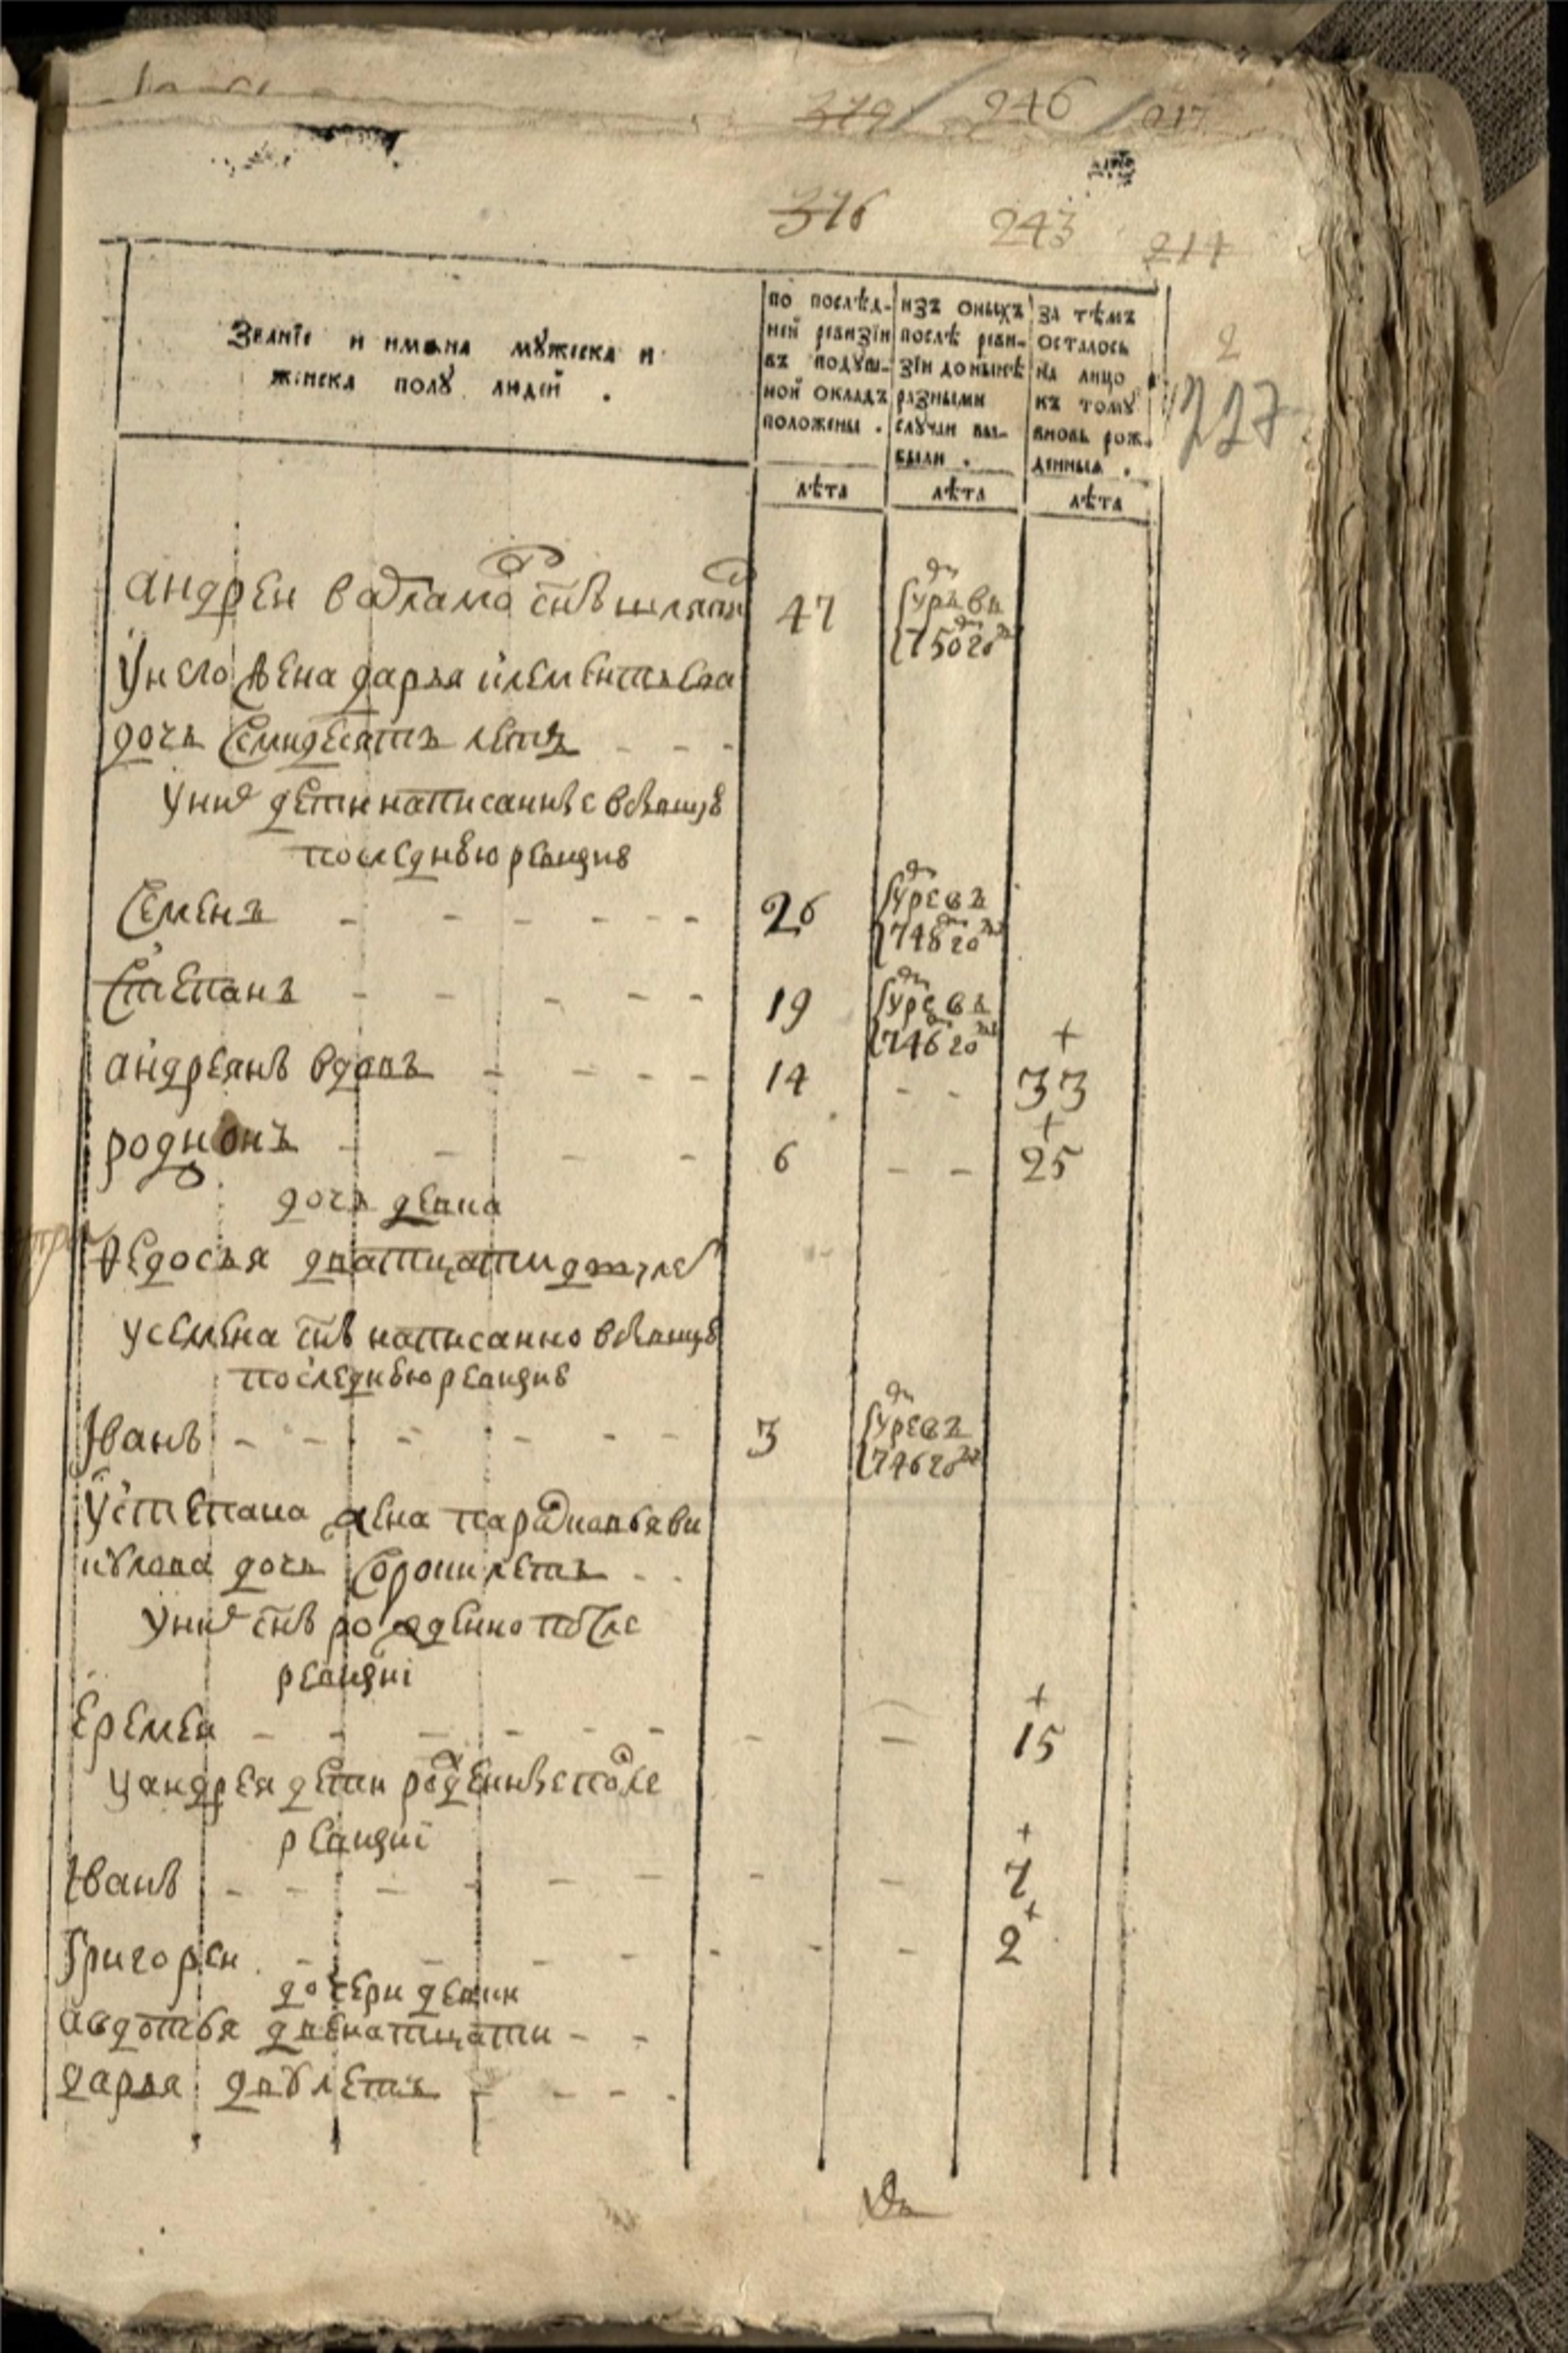 379 246 217
376 243 214
Званїе и имѧна мꙋжеска и
женска полꙋ людей .
по послѣд-
ней ревизїи
въ подꙋш-
ной окладъ
положены .
лѣта
изъ оныхъ
послѣ реви-
зїи до нынѣ
разными
слꙋчаи вы-
были .
лѣта
за тѣмъ
осталось
на лицо
къ томꙋ
вновь рож-
денныѧ .
лѣта
2
227
андреи варламо снъ 47
умре въ
1750 го
У него жена дарья клементьева
дочь семидесятъ летъ - - -
У них дети написанные в бывшую
последнюю ревизию
Семенъ - - - - - - 26 умре въ
1748 го
Степанъ - - - - - 19 умре въ
1746 го
андреянъ вдовъ - - - - 14 - - + 33
родионъ - - - - 6 - - + 25
дочь девка
Федосья дватцати дву лет
у семена снъ написанно в бывшую
последнюю ревизию
Iванъ - - - - - - 3 умре въ
1746 го
У степана жена парасковья ви
кулова дочь сорокъ летъ - -
У них снъ рожденно после
ревизиi
Еремеи - - - - - - - - + 15
у андрея дети рожденные после
ревизиi
Iванъ - - - - - - - - + 7
Григореи - - - - - - - + 2
дочери девки
авдотья двенатцати - -
дарья двꙋ летъ - - - -